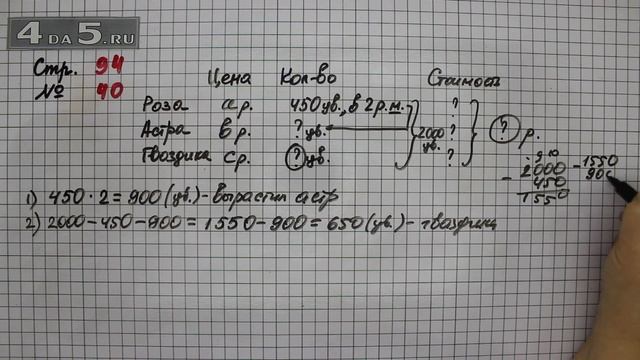 4 DA 5.RU
Стр. 94
№ 40
Цена Кол-во Стоимость
Роза a р. 450 цв., в 2 р. м. ?
Астра в р. ? цв. 2000 цв. ? ? р.
Гвоздика с р. ? цв. ?
2000 - 1550
- 450 900
1550
1) 450 · 2 = 900 (цв.) - вырастили астр
2) 2000 - 450 - 900 = 1550 - 900 = 650 (цв.) - гвоздик